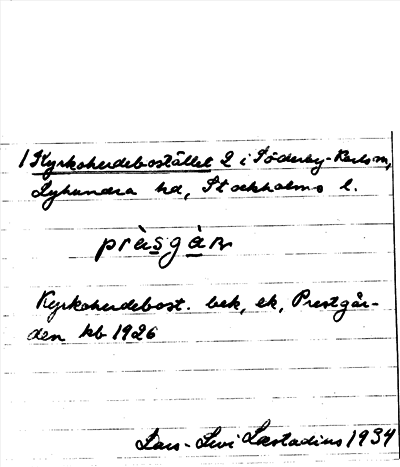 1 Kyrkoherdebostället 2 i Söderby-Karls sn,
Lyhundra hd, Stockholms l.
prà̀sgà̀ʀn
Kyrkoherdebost. bek, ek, Prestgår-
den kb 1926
Lars-Levi Læstadius 1934